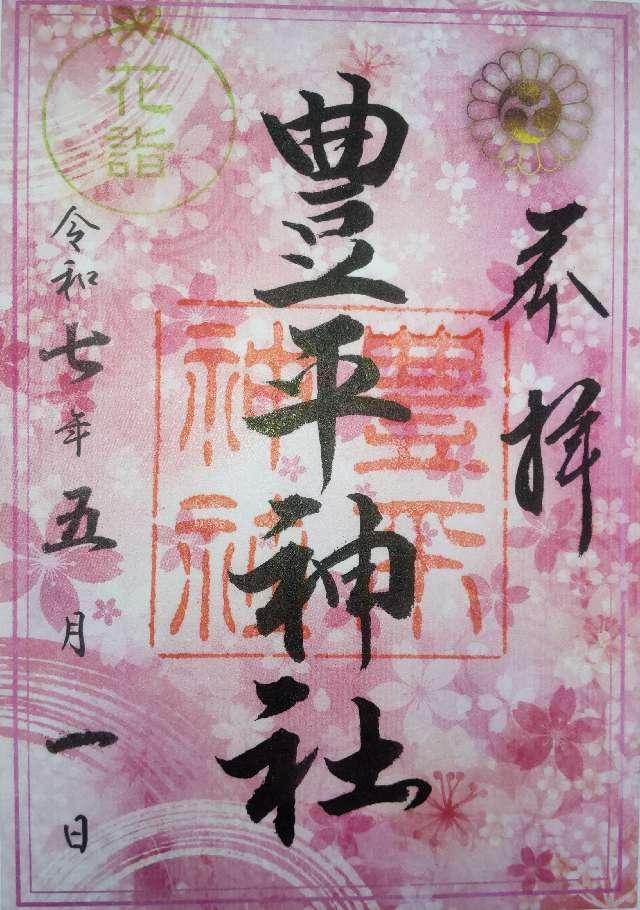 奉拝
豊平神社
豊平
神社
花
詣
令和七年五月一日